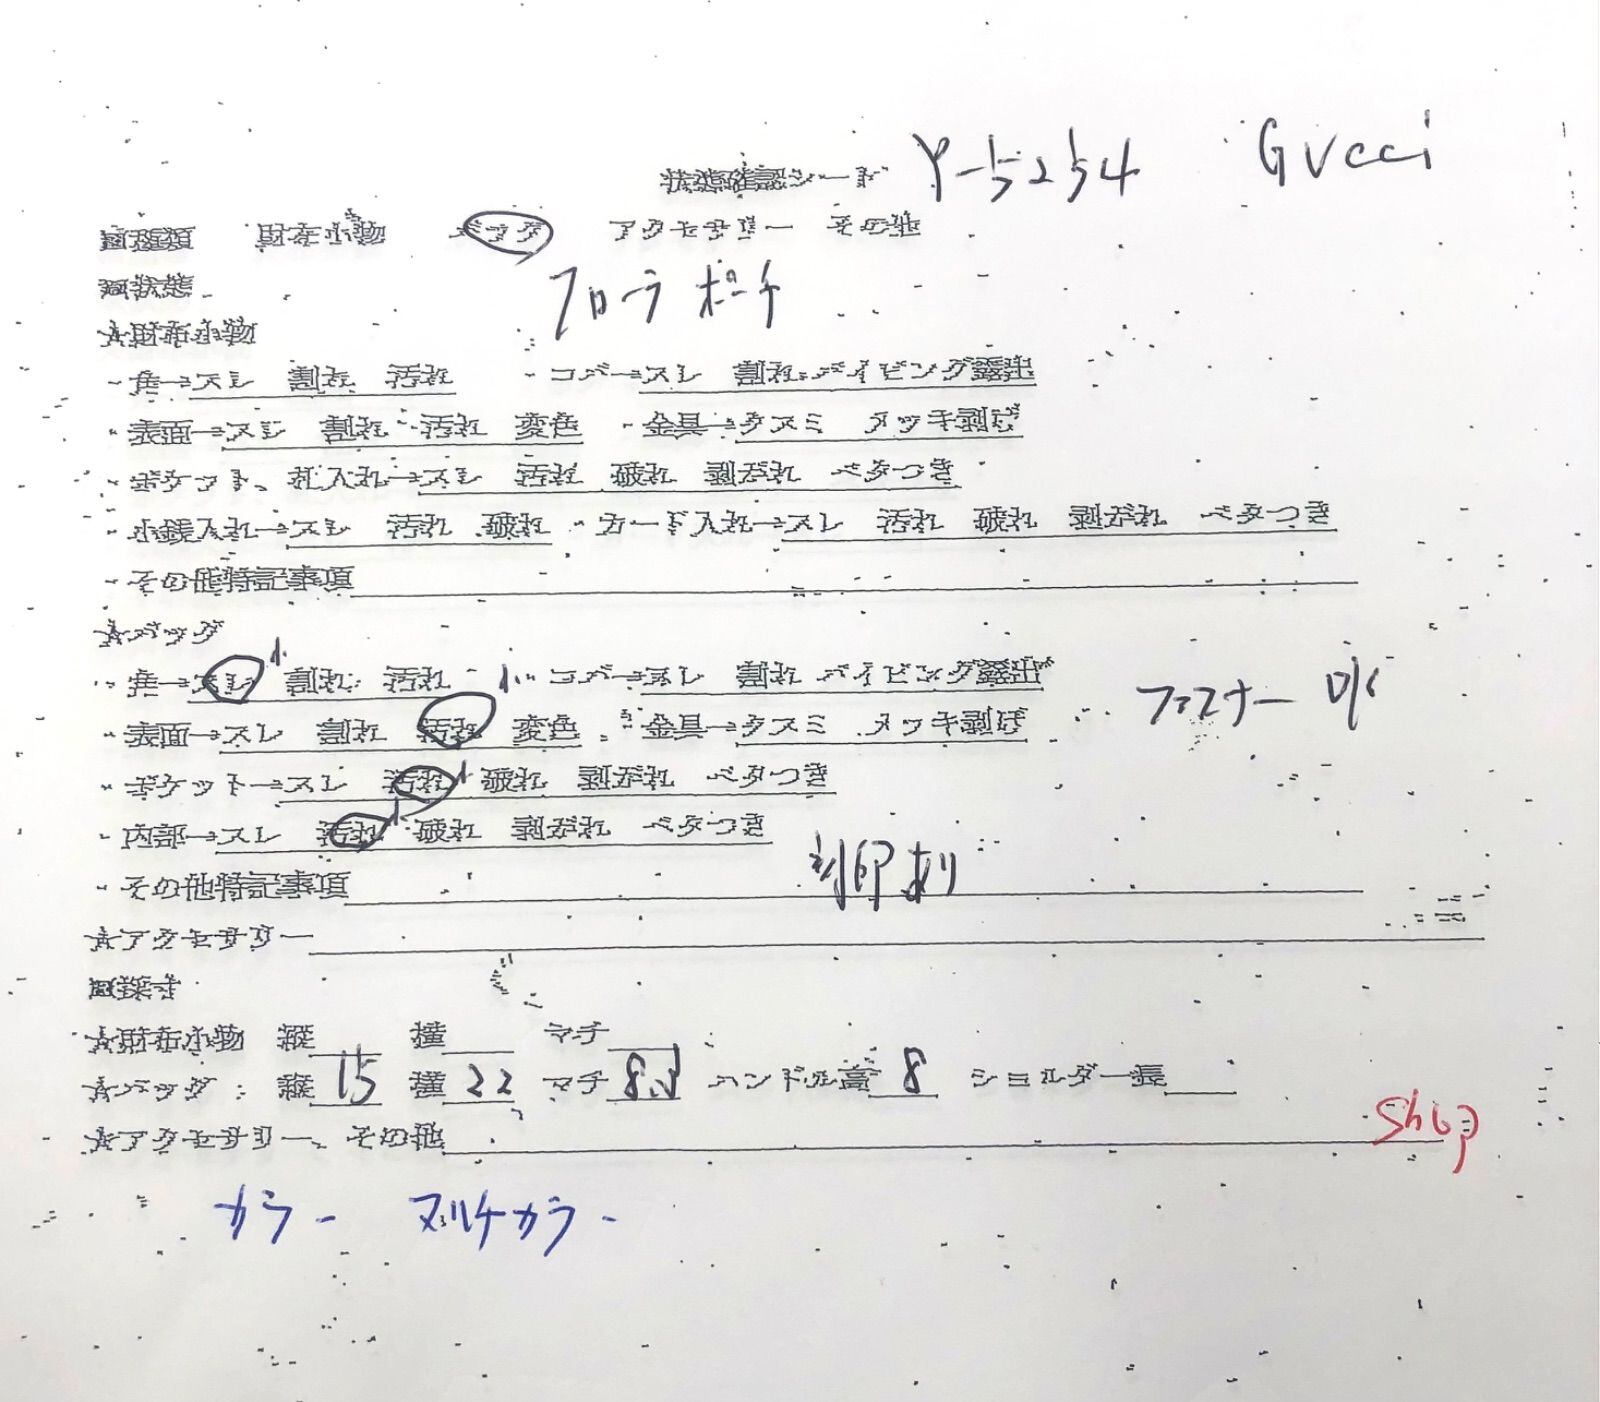 状態確認シート Y-5254 Gucci
■種類 財布小物 バッグ アクセサリー その他
■状態 フローラ ポーチ
☆財布小物
・角→スレ 割れ 汚れ ・コバ→スレ 割れ パイピング露出
・表面→スレ 割れ 汚れ 変色 ・金具→クスミ メッキ剥げ
・ポケット、札入れ→スレ 汚れ 破れ 剥がれ ベタつき
・小銭入れ→スレ 汚れ 破れ ・カード入れ→スレ 汚れ 破れ 剥がれ ベタつき
・その他特記事項
☆バッグ
・角→スレ 小 割れ 汚れ ・コバ→スレ 割れ パイピング露出
・表面→スレ 割れ 汚れ 小 変色 ・金具→クスミ メッキ剥げ ファスナー
・ポケット→スレ 汚れ 破れ 剥がれ ベタつき
・内部→スレ 汚れ 破れ 剥がれ ベタつき
・その他特記事項 刻印あり
☆アクセサリー
■採寸
☆財布小物 縦 横 マチ
☆バッグ 縦 15 横 22 マチ ハンドル高 8 ショルダー長
☆アクセサリー、その他 Shop
カラー マルチカラー